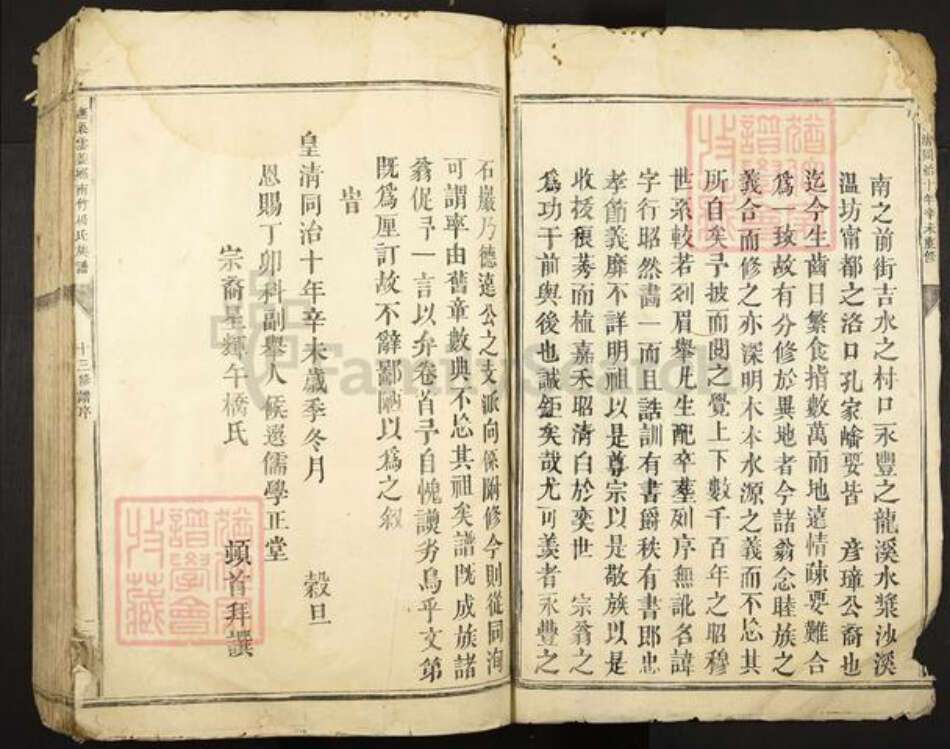 南之前街吉水之村口永豐之龍溪水漿沙溪
溫坊甯都之洛口孔家崳要皆 彦璋公裔也
迄今生齒日繁食指數萬而地遠情疎要難合
爲一致故有分修於異地者今諸翁念睦族之
義合而修之亦深明木本水源之義而不忘其
所自矣予披而閱之覺上下數千百年之昭穆
世系較若列眉舉凡生配卒塟列序無訛名諱
字行昭然畵一而且誥訓有書爵秩有書即忠
孝節義靡不詳明祖以是尊宗以是敬族以是
收梗稂莠而植嘉禾昭清白於奕世 宗翁之
爲功于前與後也誠鉅矣哉尤可羙者永豐之
石巖乃德遠公之支派向係附修今則從同洵
可謂率由舊章數典不忘其祖矣譜既成族諸
翁促予一言以弁卷首予自愧謭劣烏乎文第
既爲厘訂故不辭鄙陋以爲之叙
旹
皇清同治十年辛未歲季冬月 榖旦
恩賜丁卯科副舉人候選儒學正堂
宗裔星輝午橋氏 頓首拜譔
十三修譜序
同治十年辛未重修
FamilySearch
譜學會
收藏